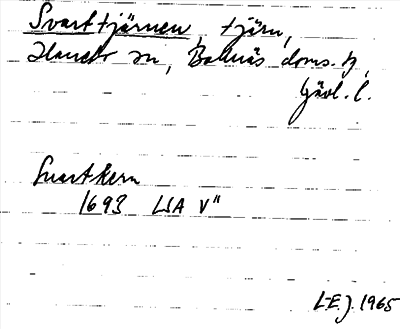 Svarttjärnen, tjärn,
Hanebo sn, Bollnäs doms.g,
Gävl. l.
Svartkern
1693 LSA V"
L-E.J. 1965